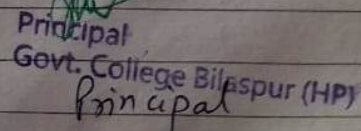 Principal
Govt. College Bilaspur (HP)
Principal